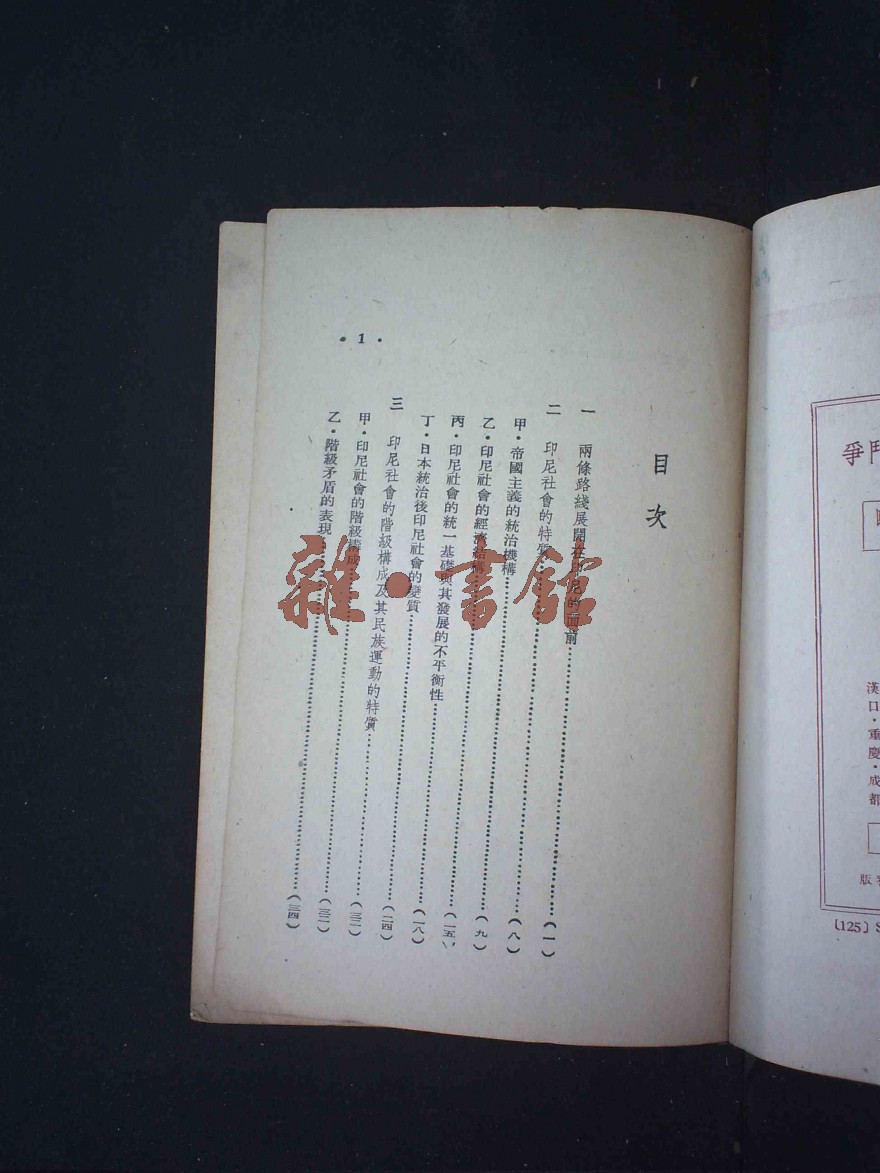 目次
一 兩條路綫展開在印尼的面前……(一)
二 印尼社會的特質……(八)
甲・帝國主義的統治機構……(九)
乙・印尼社會的經濟結構……(一五)
丙・印尼社會的統一基礎與其發展的不平衡性……(一八)
丁・日本統治後印尼社會的變質……(二四)
三 印尼社會的階級構成及其民族運動的特質……(三二)
甲・印尼社會的階級構成……(三二)
乙・階級矛盾的表現……(三四)
• 1 •
雜・書館
鬥爭
漢口・重慶・成都
版
〔125〕S